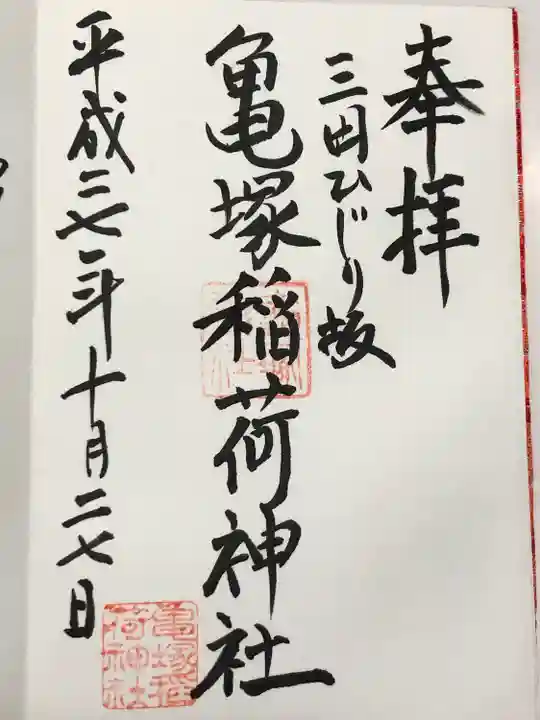 奉拝
三田ひじり坂
亀塚稲荷神社
平成二七年十月二七日
亀塚稲荷神社